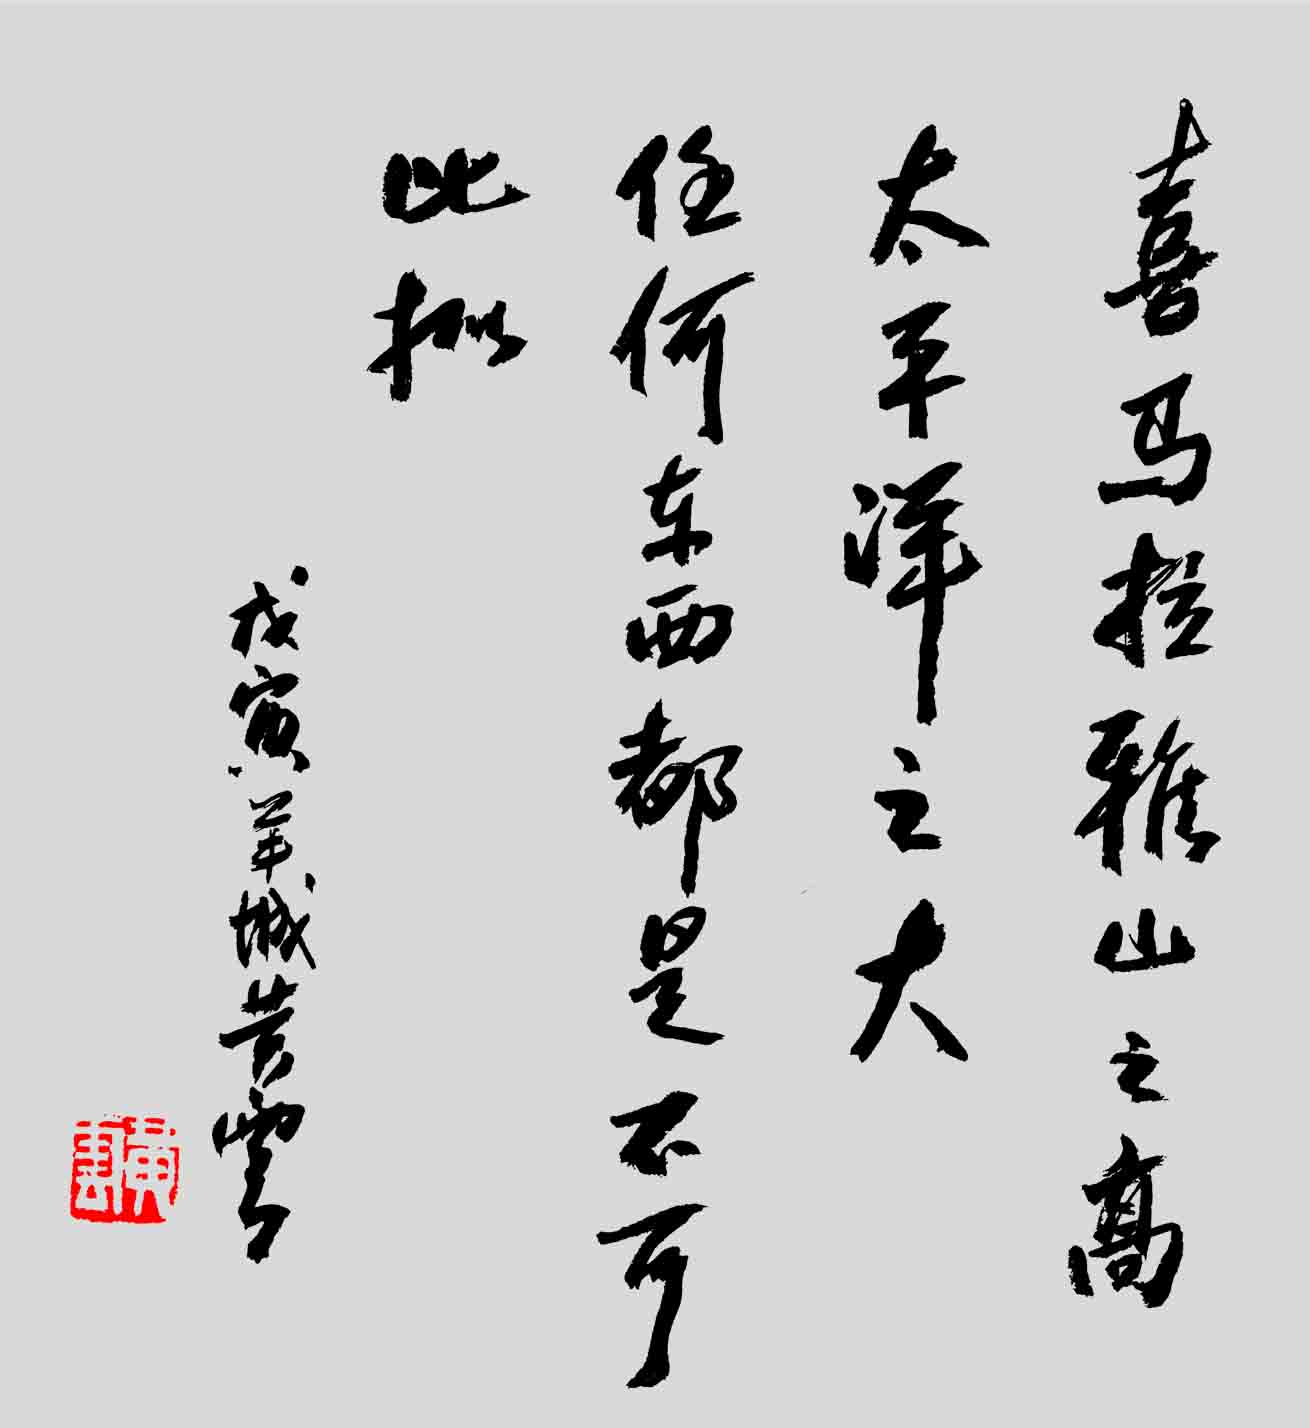 喜马拉雅山之高
太平洋之大
任何东西都是不可
比拟
戊寅羊城黄云
黄云